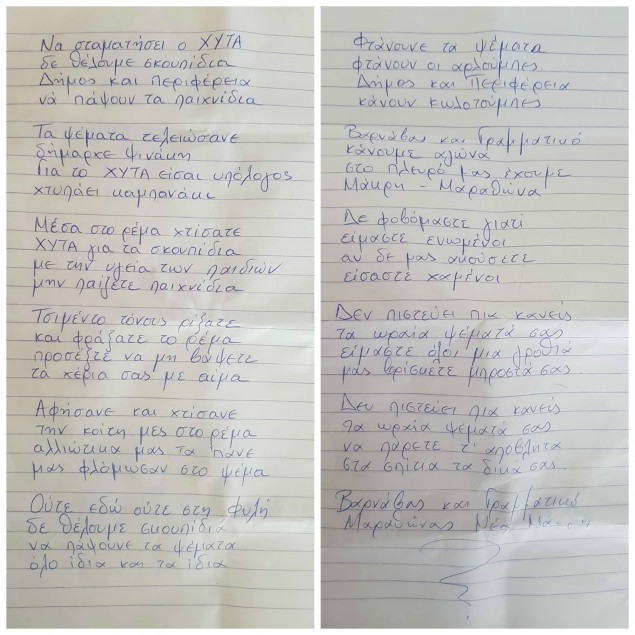 Να σταματήσει ο ΧΥΤΑ
δε θέλουμε σκουπίδια
Δήμος και Περιφέρεια
να πάψουν τα παιχνίδια
Τα ψέματα τελειώσανε
δήμαρχε ψινάκη
Για το ΧΥΤΑ είσαι υπόλογος
χτυπάει καμπανάκι
Μέσα στο ρέμα χτίσατε
ΧΥΤΑ για τα σκουπίδια
με την υγεία των παιδιών
μην παίζετε παιχνίδια
Τσιμέντο τόνους ρίξατε
και φράξατε το ρέμα
προσέξτε να μη βάψετε
τα χέρια σας με αίμα
Αφήσανε και χτίσανε
την κοίτη μες στο ρέμα
αλλιώτικα μας τα 'πανε
μας φλόμωσαν στο ψέμα
Ούτε εδώ ούτε στη φυλή
δε θέλουμε σκουπίδια
να πάψουνε τα ψέματα
όλο ίδια και τα ίδια
Φτάνουνε τα ψέματα
φτάνουν οι αρλούμπες
Δήμος και Περιφέρεια
κάνουν κωλοτούμπες
Βαρνάβας και Γραμματικό
κάνουμε αγώνα
στο πλευρό μας έχουμε
Μάκρη - Μαραθώνα
Δε φοβόμαστε γιατί
είμαστε ενωμένοι
αν δε μας ακούσετε
είσαστε χαμένοι
Δεν πιστεύει πια κανείς
τα ωραία ψέματά σας
είμαστε όλοι μια γροθιά
μας βρίσκετε μπροστά σας.
Δεν πιστεύει πια κανείς
τα ωραία ψέματά σας
να πάρετε τ' απόβλητα
στα σπίτια τα δικά σας.
Βαρνάβας και Γραμματικό
Μαραθώνας Νέα